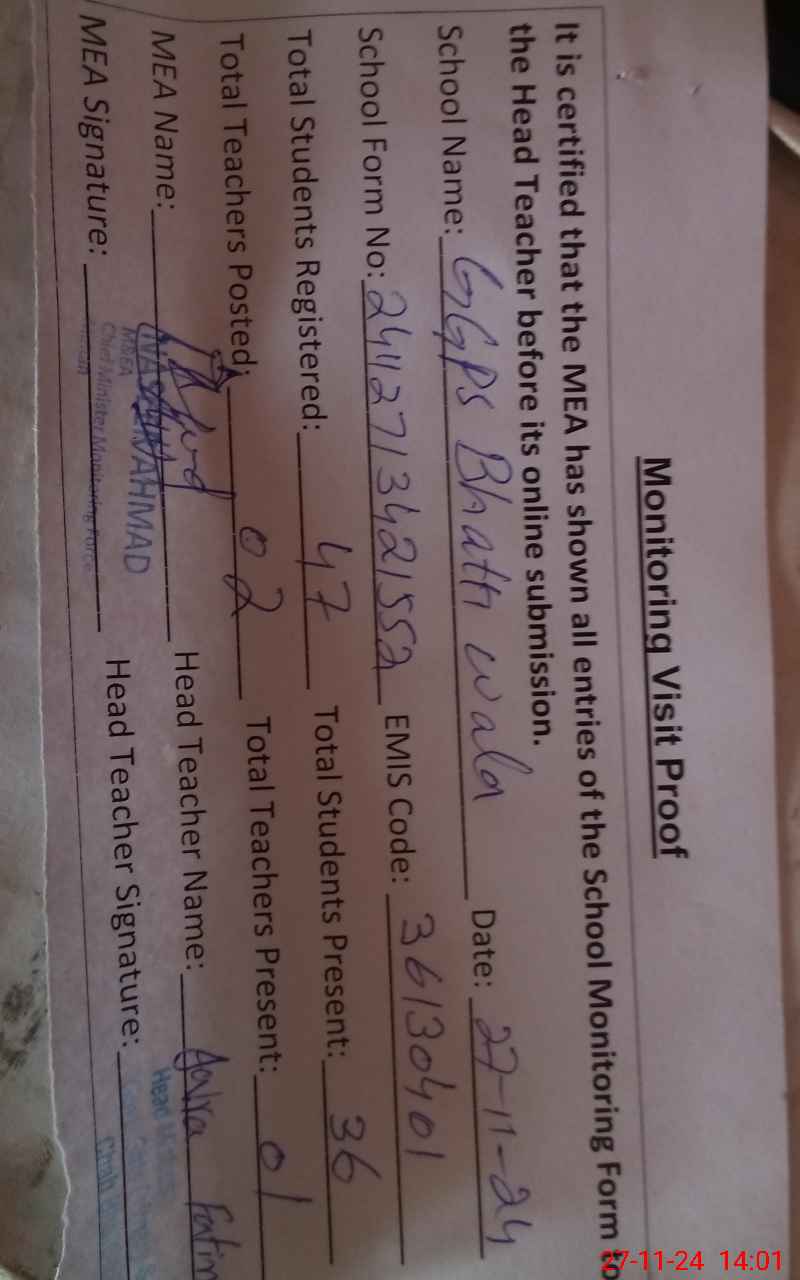 Monitoring Visit Proof
It is certified that the MEA has shown all entries of the School Monitoring Form to
the Head Teacher before its online submission.
School Name: GGPS Bhatti wala Date: 27-11-24
School Form No: 24112713421552 EMIS Code: 36130401
Total Students Registered: 47 Total Students Present: 36
Total Teachers Posted: 02 Total Teachers Present: 01
MEA Name: Head Teacher Name: Fatim
MEA Signature: Head Teacher Signature:
AHMAD
M&EA
Chief Minister Monitoring Force
Head
27-11-24 14:01